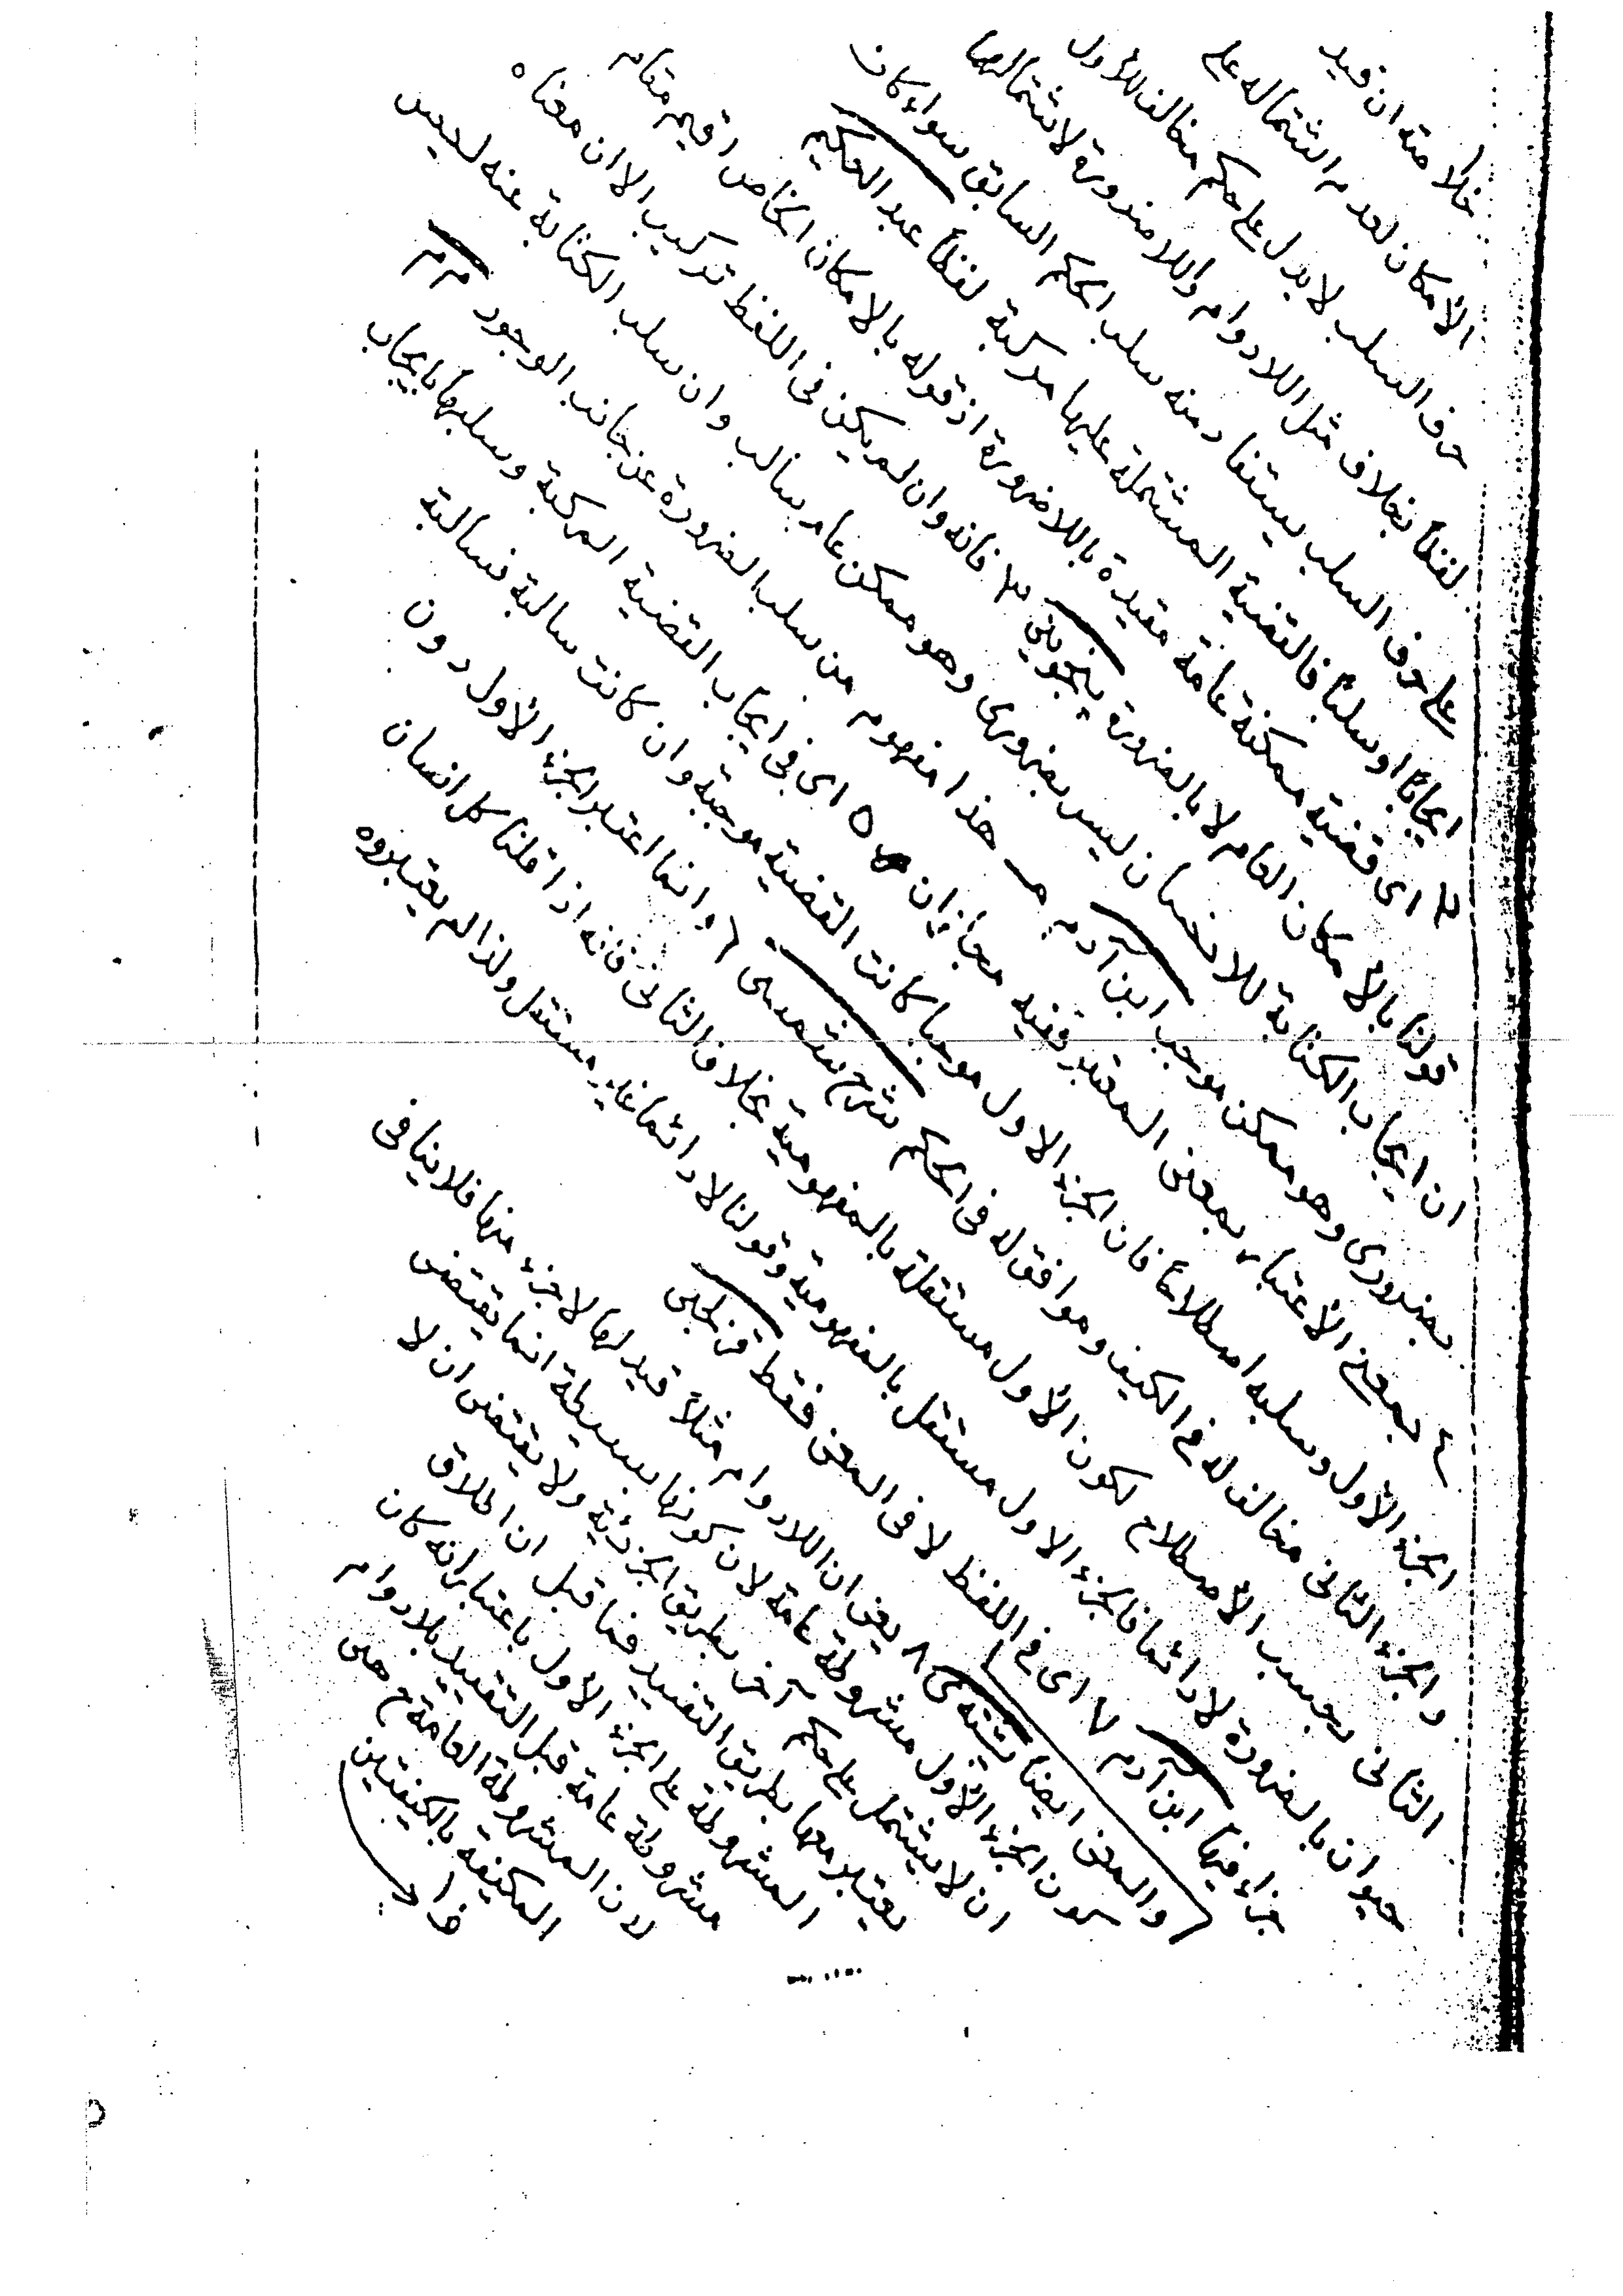 خلاصته ان قيد
الأمكان لعدم اشتماله على
حرف السلب لا يدل على حكم مخالف للأول
لفظاً بخلاف مثل اللادوام واللاضرورة لاشتمالهما
على حرف السلب يستفاد منه سلب الحكم السابق سواء كان
ايجابًا او سلبًا فالقضية المشتملة عليها مركبة لفظاً عبد الحكيم
٢ اى قضية ممكنة عامة مقيدة باللاضرورة اذ قوله بالامكان الخاص اقيم مقام
قولنا بالأمكان العام لا بالضرورة ٣ فانه وان لم يكن فى اللفظ تركيب الا ان معناه
ان ايجاب الكتابة للانسان ليس بضرورى وهو ممكن عام سالب وان سلب الكتابة عنه ليس
بضرورى وهو ممكن موجب ابن آدم هذا مفهوم من سلب الضرورة عن جانب الوجود م م
٤ بمعنى الأعتبار بمعنى المعتبر ففيه مجازان ٥ اى فى ايجاب القضية المركبة وسلبها بايجاب
الجزء الأول وسلبه اصطلاحًا فان الجزء الاول موجبا كانت القضية موجبة وان كانت سالبة فسالبة
والجزء الثانى مخالف له فى الكيف وموافق له فى الحكم شرح شمسى ٦ وانما اعتبر الجزء الأول دون
الثانى بحسب الأصطلاح لكون الأول مستقلة بالمفهومية بخلاف الثانى فانه اذا قلنا كل انسان
حيوان بالضرورة لا دائما فالجزء الاول مستقل بالمفهومية وقولنا لا دائما غير مستقل ولذا لم يعتبروه
جزء فيها ابن آدم ٧ اى فى اللفظ لا فى المعنى فقط قزلجى
والمعنى ايضا ٨ يعنى ان اللادوام مثلاً قيد لها لا جزء منها فلا ينافى
كون الجزء الأول مشروطة عامة لان كونها بسيطة انما يقتضى
ان لا يشتمل على حكم آخر بطريق الجزئية ولا يقتضى ان لا
يعتبر معها بطريق التقييد فما قيل ان اطلاق
المشروطة على الجزء الأول باعتبار انه كان
مشروطة عامة قبل التقييد بلادوام
لان المشروطة العامة ح هى
المكيفة بالكيفيتين